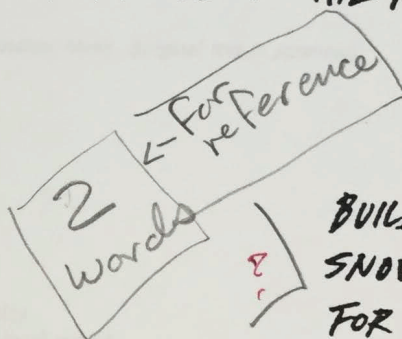 ← For
reference
2
words
?
SNOW
FOR